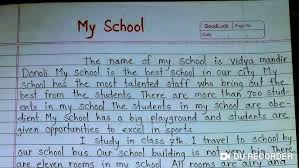 My School
GoodLuck Page No.
Date
The name of my school is Vidya mandir
Danoli. My school is the best school in our city. My
school has the most talented staff who bring out the
best from the students. There are more than 700 stud-
ents in my school the students in my school are obe-
dient My school has a big playground and students are
given opportunities to excel in sports.
I study in class 7th. I travel to school by
our school bus. Our school building is not very big There
are eleven rooms in my school All rooms are airy and
DU RECORDER